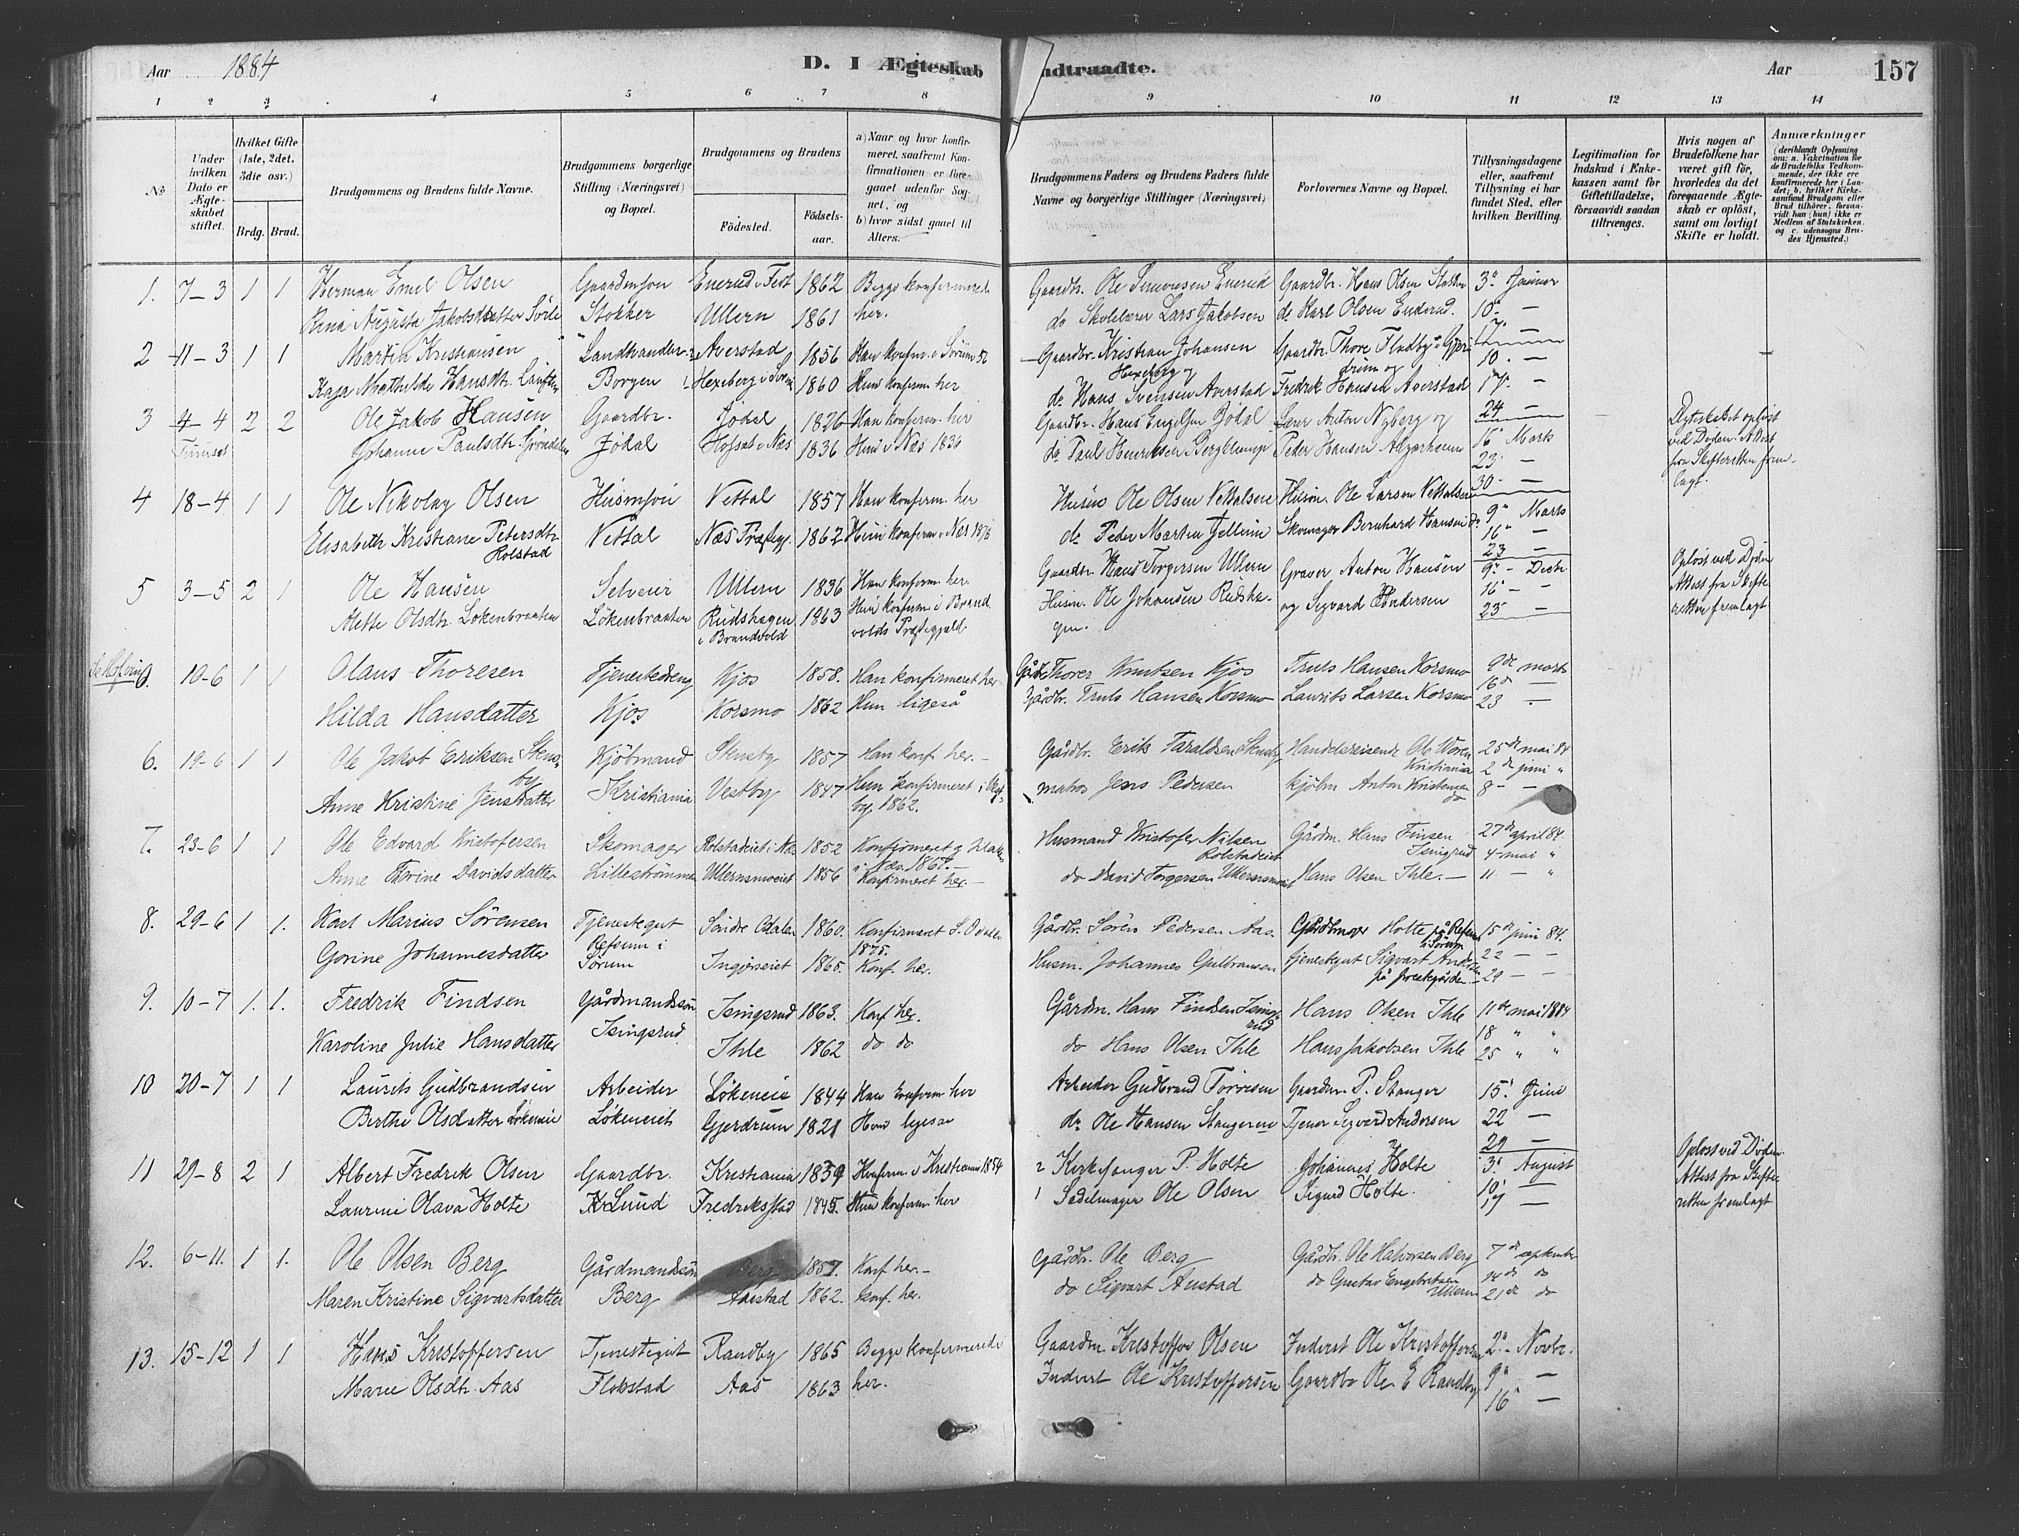 Aar 1884
D. I Ægteskab indtraadte.
Aar
157
1 2 3 4 5 6 7 8 9 10 11 12 13 14
No.
Under hvilken Dato er Ægteskabet stiftet.
Hvilket Gifte (1ste, 2det, 3die osv.)
Brdg. Brud.
Brudgommens og Brudens fulde Navne.
Brudgommens borgerlige Stilling (Næringsvei) og Bopæl.
Brudgommens og Brudens
Fødested.
Fødselsaar.
a) Naar og hvor konfirmeret, saafremt Konfirmationen er foregaaet udenfor Sognet, og
b) hvor sidst gaaet til Alters.
Brudgommens Faders og Brudens Faders fulde Navne og borgerlige Stillinger (Næringsvei)
Forlovernes Navne og Bopæl.
Tillysningsdagene eller, saafremt Tillysning ei har fundet Sted, efter hvilken Bevilling.
Legitimation for Indskud i Enkekassen samt for Giftetilladelse, forsaavidt saadan tiltrænges.
Hvis nogen af Brudefolkene har været gift før, hvorledes da det foregaaende Ægteskab er opløst, samt om lovligt Skifte er holdt.
Anmærkninger
1. 7–3 1 1 Herman Emil Olsen Gaardmsøn Enerud i Fet 1862 Begge konfirmerede Gaardbr. Ole Simensen Enerud Gaardbr. Hans Olsen 3. Januar
Augusta Jakobsdatter Stokker Ullern 1861 her. do Skolelærer Lars Jakobsen do Karl Olsen Enderud. 10. —
17. —
2 11–3 1 1 Martin Kristiansen Landhandler Averstad 1856 Han konfirm. i Sørum Gaardbr. Kristian Johansen Hexeberg og Gaardbr. Thore Fladby i 10. —
Kaja Mathilde Hansdtr. Borgen Hexeberg i 1860 Hun konfirm her do Hans Svensen Averstad Fredrik Hansen Averstad 17. —
24 —
3 4–4 2 2 Ole Jakob Hansen Gaardbr. Jødal 1826 Han konfirm. her Gaardbr. Hans Jødal Lærer Anton Nyberg og 16 Marts Ægteskabet opløst
Johanne Paulsdtr. Jødal i Næs 1836 Hun i Næs do Paul Henriksen Peder Hansen 23 — ved Døden. Attest
30 — fra Skifteretten fremlagt.
4 18–4 1 1 Ole Nikolay Olsen Husmsøn Nettal 1857 Han konfirm. her Husm Ole Olsen Husm. Ole Larsen 9 Marts
Elisabeth Kristiane Petersdtr. Holstad Nettal Næs Præstegj. 1862 Hun konfirm i Næs do Peder Martin Skomager Bernhard Hansen 16 —
23 —
5 3–5 2 1 Ole Hansen Selveier Ullern 1836 Han konfirm her. Gaardbr. Hans Torgersen Ullern Graver Anton Hansen 9. — Opløst ved Døden
Mette Olsdtr. Løkenbraaten Løkenbraaten Rudshagen i Brandvold 1863 Hun konfirm i Brandvolds Præstegjæld. Husm. Ole Johansen Rudshagen. og Sigvard Andersen 16 — Attest fra Skifte
23 — retten fremlagt
10–6 1 1 Olaus Thoresen Tjenestedreng Kjos 1858. Han konfirmeret her Thorer Knutsen Kjos Truls Hansen Korsmo 9de marts
Hilda Hansdatter Kjos Korsmo 1862 Hun ligeså Gårdbr. Truls Hansen Korsmo Laurits Larsen Korsmo 16d —
23 —
6. 19–6 1 1 Ole Jakob Eriksen Stensby Kjøbmand Stensby 1857 Han konf. her. – Gårdbr. Erik Taraldsen Stensby Handelsreisende Ole Woren Kristiania 25de mai 84
Anne Kristine Jensdatter Kristiania Vestby 1847 Hun konfirmeret i Vestby 1862. matros Jens Pedersen kjøbm Anton Kristensen do 2de juni "
8 — "
7. 23–6 1 1 Ole Edvard Kristofersen Skomager Rolstadeiet i Næs 1852 Konfirmeret i Næs. Husmand Kristofer Nilsen Rolstadeiet Gårdm. Hans Finsen Isingrud 27de april 84.
Anne Thorine Davidsdatter Lillestrømmen Ullernsmoeiet 1856 Konfirmeret her. – do David Torgersen Ullernsmoeiet Hans Olsen Ihle. – 4 mai "
11 — "
8. 29–6 1 1. Karl Marius Sørensen Tjenestegut Refsum i Sørum Søndre Odalen 1860. Konfirmeret S. Odalen 1875. Gårdbr. Søren Pedersen Aas. Gårdbruger Holte på Refsum i Sørum 15de juni 84.
Gorine Johannesdatter Ingjerseiet 1865. Konf. her. Husm. Johannes Gulbransen tjenestegut Sigvart Andersen på præstegården. 22 — —
29 — —
9. 10–7 1. 1. Fredrik Findsen Gårdmandssøn Isingsrud Isingsrud 1863. Konf. her. Gårdm. Hans Findsen Isingsrud Hans Olsen Ihle 11te mai 1884
Karoline Julie Hansdatter Ihle 1862 do do do Hans Olsen Ihle Hans Jakobsen Ihle 18 " "
25 " "
10 20–7 1 1 Laurits Gudbrandsen Arbeider Løkeneie 1844 Han konfirm her Arbeider Gudbrand Toresen Gaardm. P. Stanger 15 Juni
Berthe Olsdatter Løkeneie Løkeneiet Gjerdrum 1821 Hun ligesaa do Ole Hansen Tjener Sigvard Andersen 22 —
29 —
11 29–8 2 1 Albert Fredrik Olsen Gaardbr. Kristiania 1839 Konfirm. i Kristiania 1854 2 Kirkesanger P. Holte Johannes Holte 3. August Opløst ved Døden
Laurine Olava Holte Lund Fredriksstad 1845. Hun konfirm her 1 Sadelmager Ole Olsen Sigurd Holte. 10 — Attest fra Skifte
17 — retten fremlagt
12. 6–11. 1 1. Ole Olsen Berg Gårdmandssøn Berg 1857. Konf. her. – Gårdbr. Ole Berg Gårdbr. Ole Halvorsen Berg 7de september
Maren Kristine Sigvartsdatter Berg Austad 1862. konf. her. do Sigvart Austad do Gustav Engebretsen Ullern 14de do
21de do
13. 15–12 1 1 Hans Kristoffersen Tjenestegut Randby 1865 Begge konfirmerede Gaardm Kristoffer Olsen Inderst Ole Kristoffersen 2. Novbr.
Marie Olsdtr. Aas Flokstad Aas 1863 her. Inderst Ole Kristoffersen Gaardbr Ole E Randby 9 —
16 —